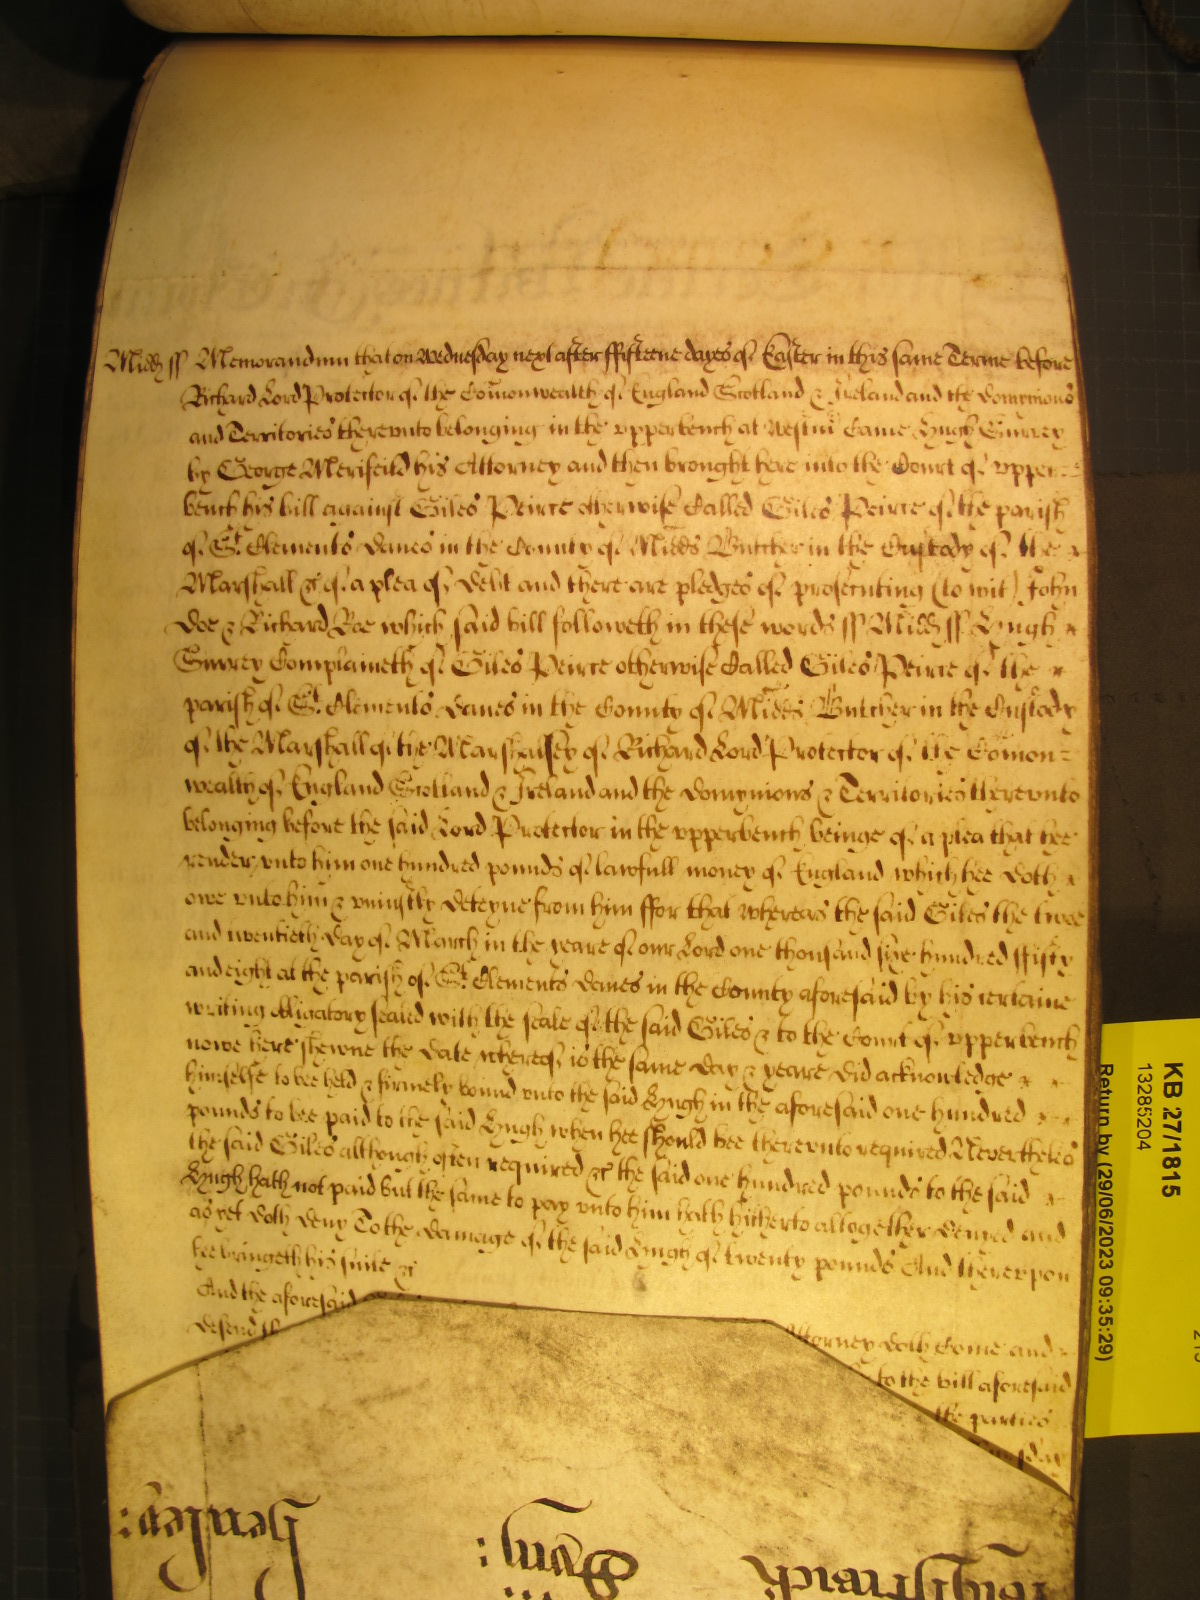 Midds ss Memorandum that on Wednesday next after ffifteene dayes of Easter in this same Terme before
Richard Lord Protector of the Comonwealth of England Scotland & Ireland and the Dominions
and Territories therevnto belonging in the vpperbench at Westm Came Hugh Surrey
by George Merifeild his Attorney and then brought here into the Court of vpper=
bench his bill against Giles Peirce otherwise Called Giles Peirce of the parish
of St Clements Danes in the County of Midds Butcher in the Custody of the
Marshall &c of a plea of Debt and there are pledges of prosecuting (to wit) John
Doe & Richard Roe which said bill followeth in these words ss Midds ss Hugh
Surrey Complaineth of Giles Peirce otherwise Called Giles Peirce of the
parish of St Clements Danes in the County of Midds Butcher in the Custody
of the Marshall of the Marshalsey of Richard Lord Protector of the Comon=
wealth of England Scotland & Ireland and the Domynions & Territories therevnto
belonging before the said Lord Protector in the vpperbench beinge of a plea that hee
render vnto him one hundred pounds of lawfull money of England which hee doth
owe vnto him & vniustly deteyne from him ffor that whereas the said Giles the twoe
and twentieth day of March in the yeare of our Lord one thousand sixe hundred ffifty
and eight at the parish of St Clements Danes in the County aforesaid by his certaine
writing obligatory sealed with the seale of the said Giles & to the Court of vpperbench
nowe here shewne the date whereof is the same day & yeare did acknowledge
himselfe to bee held & firmely bound vnto the said Hugh in the aforesaid one hundred
pounds to bee paid to the said Hugh when hee should bee therevnto required Neverthelesˢ
the said Giles although often required &c the said one hundred pounds to the said
Hugh hath not paid but the same to pay vnto him hath hitherto altogether denied and
as yet doth deny To the damage of the said Hugh of twenty pounds And therevpon
hee bringeth his suite &c
And the aforesaid Attorney doth Come and
defend th to the bill aforesaid
the parties
KB 27/1815
13285204
Return by (29/06/2023 09:35:29)